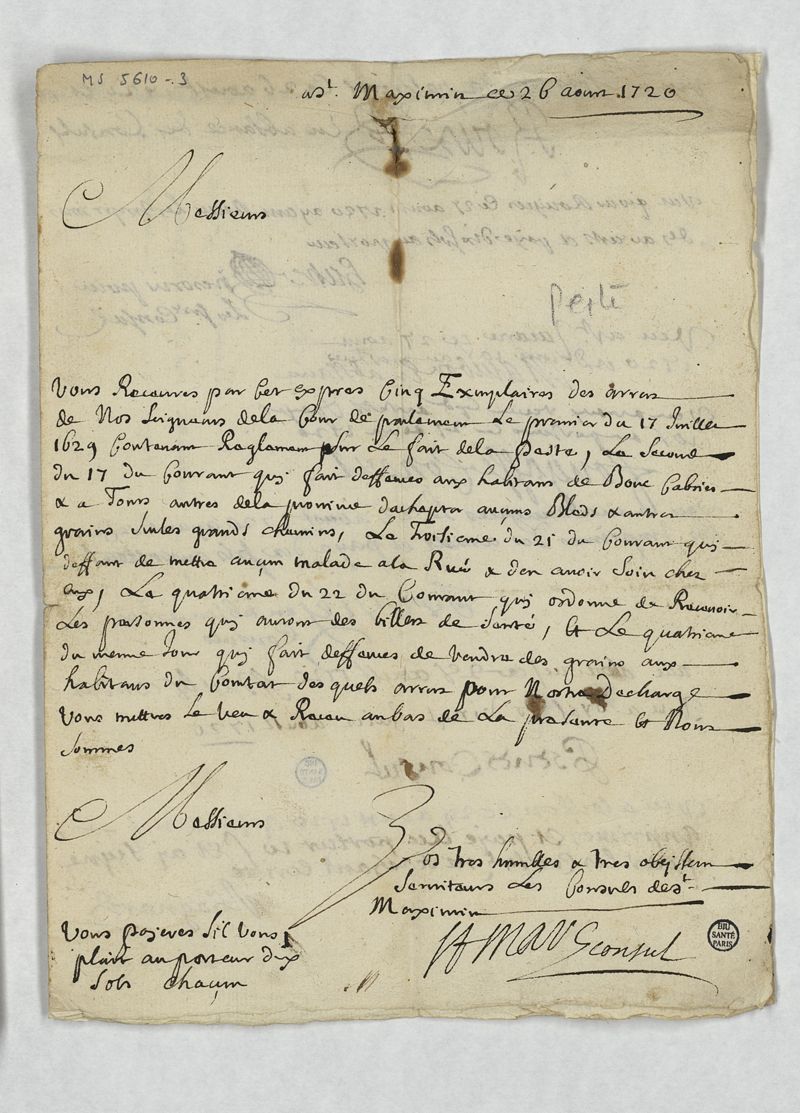 MS 5610-3
a St. Maximin ce 26 aoust 1720
Messieurs
peste
Vous Receures par cet expres Cinq Exemplaires des arrets
de Nos Seigneurs dela Cour de parlement Le premier du 17 Juillet
1629 Contenant Reglement sur Le fait dela peste, Le Second
du 17 du Courant quj fait deffences aux habitans de Bouc Cabries
& a Tous autres dela province dachepter aucuns Bleds & autres
grains surles grands chemins, Le Troisieme du 21 du Courant quj
deffant de mettre aucun malade ala Rue & den avoir soin chez
eux, Le quatrieme du 22 du Courant quj ordonne de Recevoir
Les personnes quj auront des billets de santé, Et Le quatrieme
du meme Jour quj fait deffences de vendre des grains aux
habitans du Comtat des quels arrets pour Nostre Decharge
Vous mettres Le veu & Receu aubas de La presente Et Nous
sommes
Messieurs
Vos tres humbles & tres obeissent
serviteurs Les Consuls de St.
Maximin
Vous pajeres sil vous
plait au porteur dix
sols chacun
consul
BIU
SANTÉ
PARIS